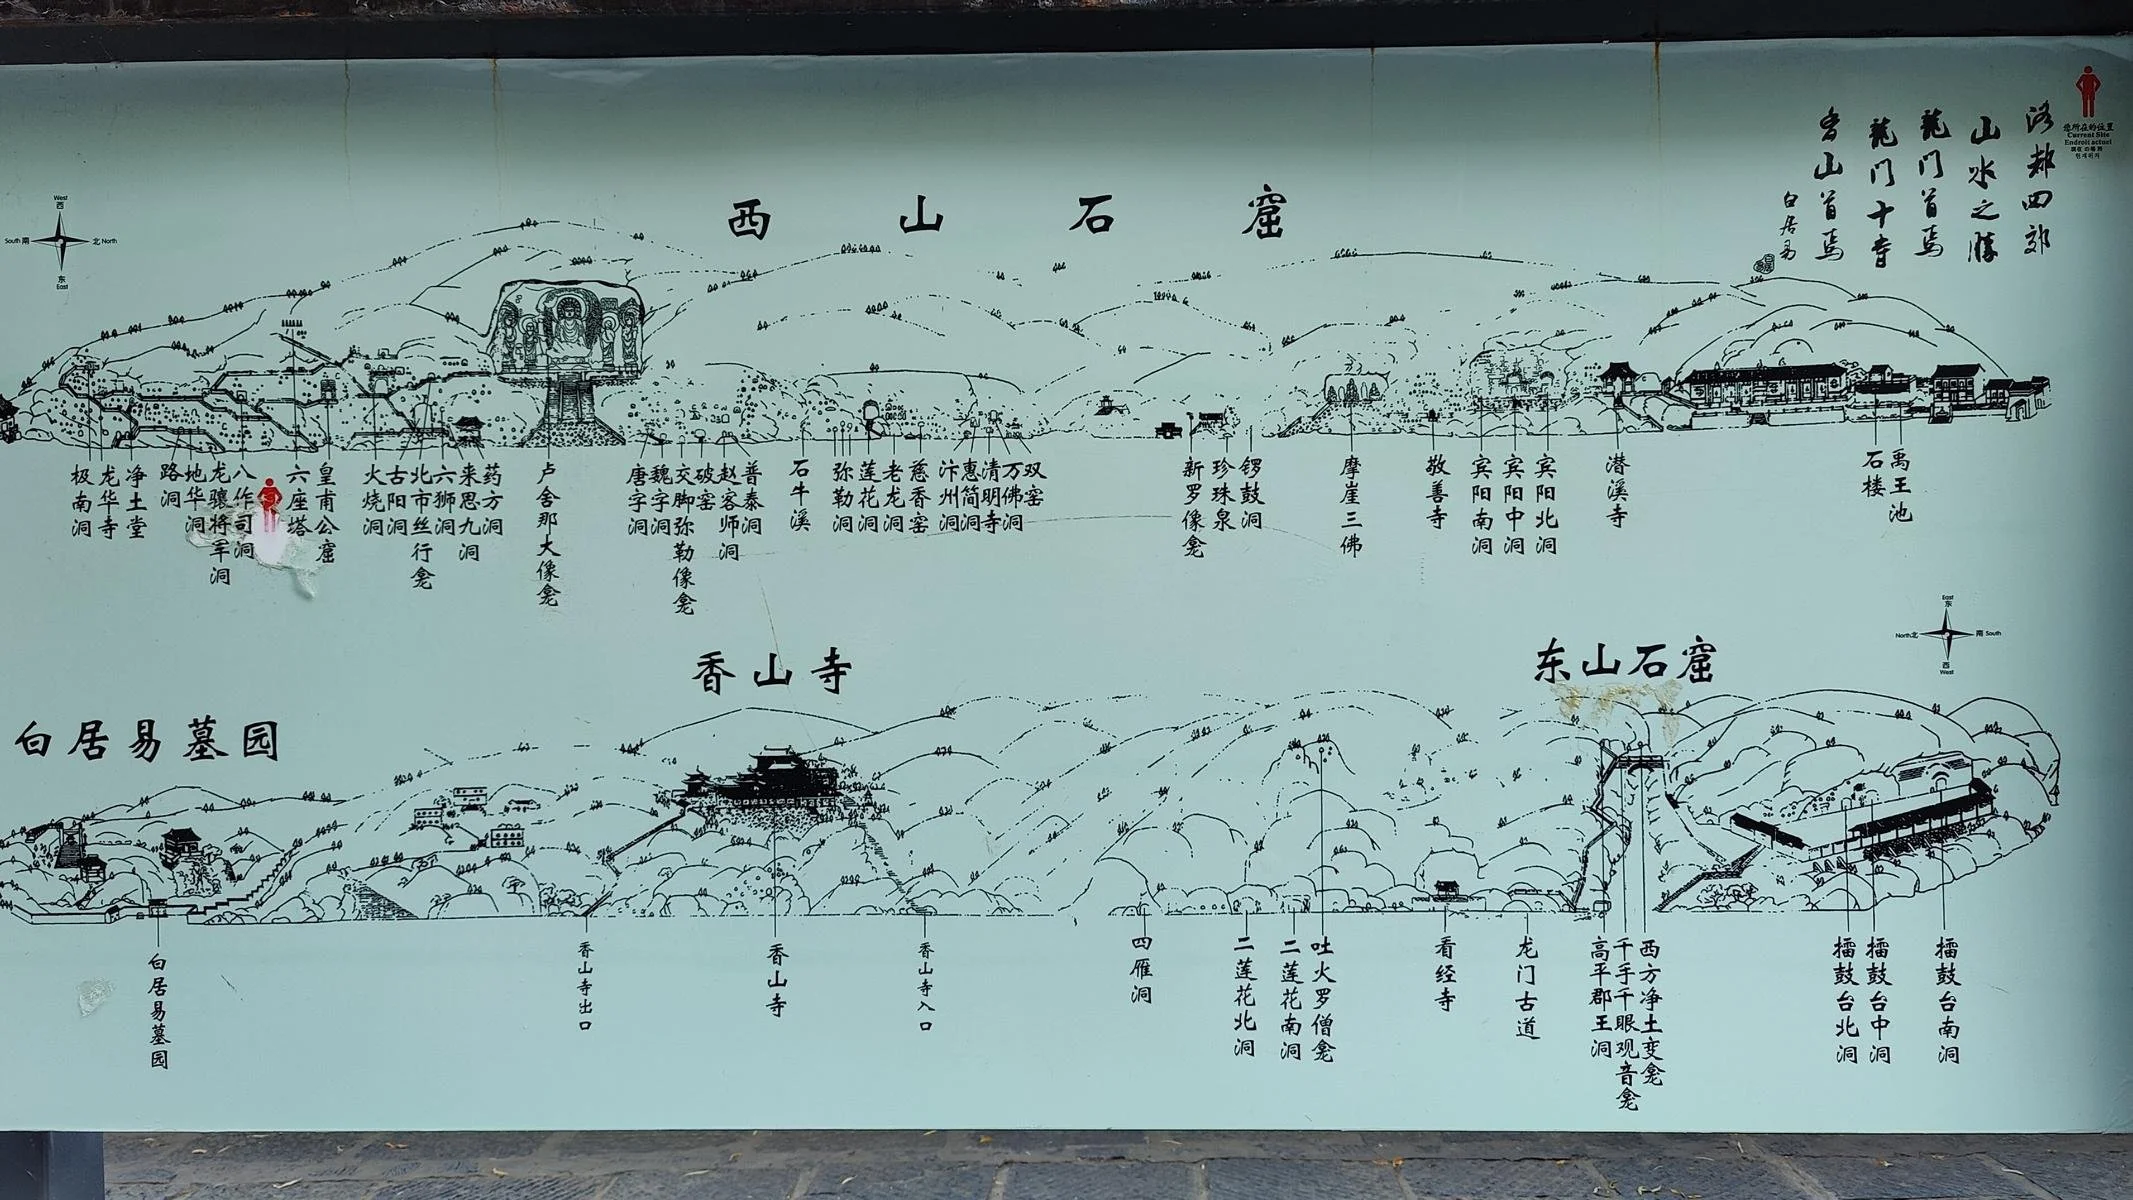 西山石窟
洛都四郊
山水之胜
龍门首焉
龍门十寺
香山首焉
白居易
您所在的位置
Current Site
Endroit actuel
현재위치
West
西
South 南
北 North
东
East
极南洞
龙华寺
净土堂
路洞
地华洞
龙骧将军洞
八作司洞
六座塔
皇甫公窟
火烧洞
古阳洞
北市丝行龛
六狮洞
来思九洞
药方洞
卢舍那大像龛
唐字洞
魏字洞
交脚弥勒像龛
破窑
赵客师洞
普泰洞
石牛溪
弥勒洞
莲花洞
老龙洞
慈香窑
汴州洞
惠简洞
清明寺
万佛洞
双窑
新罗像龛
珍珠泉
锣鼓洞
摩崖三佛
敬善寺
宾阳南洞
宾阳中洞
宾阳北洞
潜溪寺
石楼
禹王池
East
东
North 北
南 South
西
West
白居易墓园
香山寺
东山石窟
白居易墓园
香山寺出口
香山寺
香山寺入口
四雁洞
二莲花北洞
二莲花南洞
吐火罗僧龛
看经寺
龙门古道
高平郡王洞
千手千眼观音龛
西方净土变龛
擂鼓台北洞
擂鼓台中洞
擂鼓台南洞